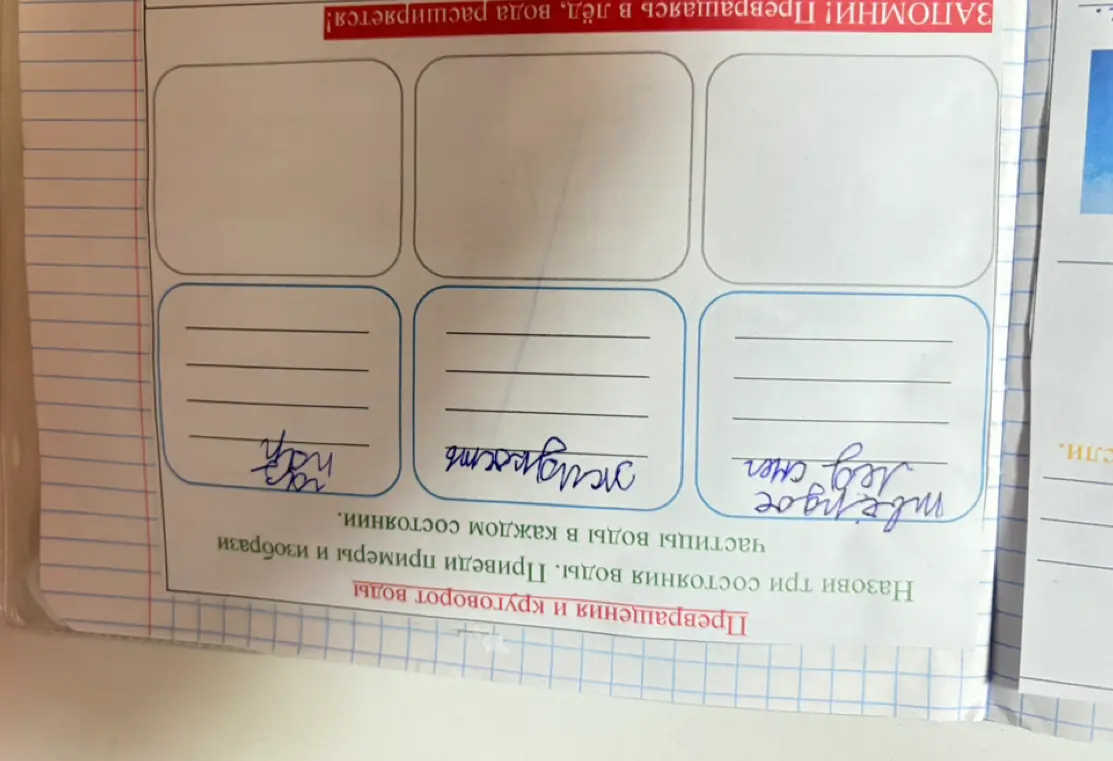 Превращения и круговорот воды
Назови три состояния воды. Приведи примеры и изобрази
частицы воды в каждом состоянии.
твёрдое
лёд снег
жидкость
газ
пар
ЗАПОМНИ! Превращаясь в лёд, вода расширяется!